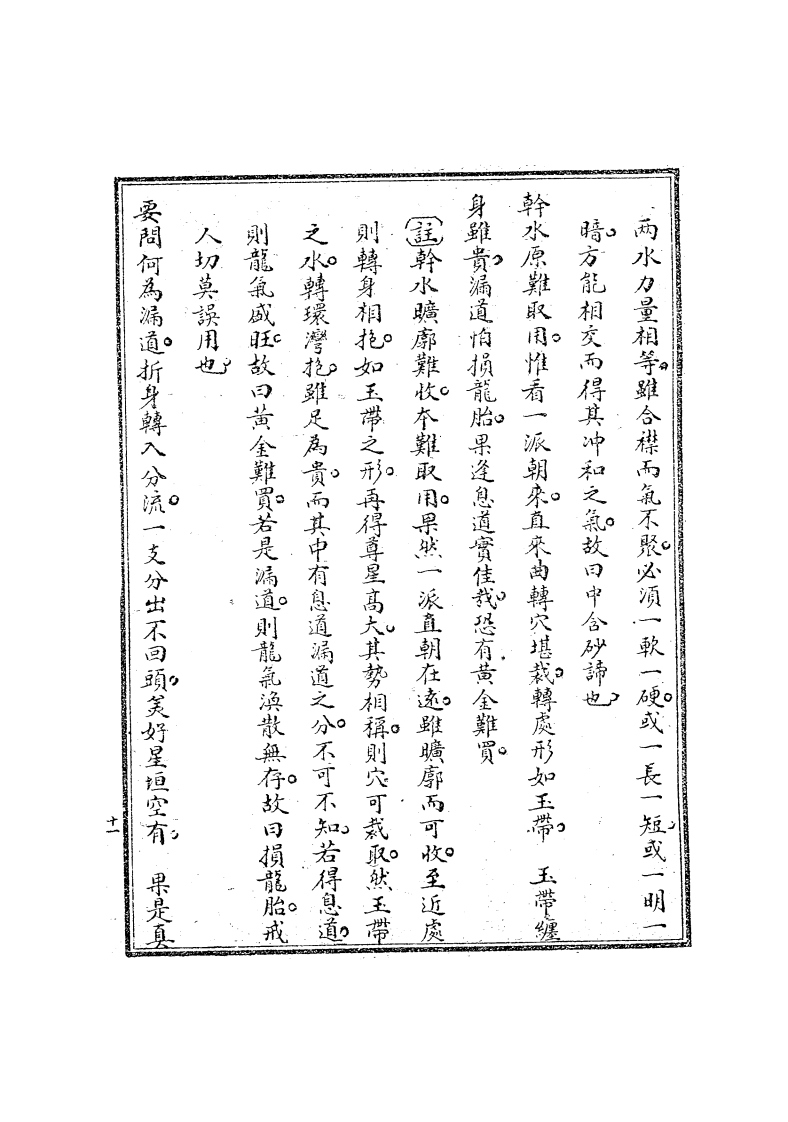 两水力量相等。雖合襟而氣不聚。必須一軟一硬。或一長一短。或一明一
暗。方能相交而得其冲和之氣。故曰中含砂諦也。
幹水原難取用。惟看一派朝來。直來曲轉穴堪裁。轉處形如玉帶。 玉帶纏
身雖貴。漏道怕損龍胎。果逢息道實佳哉。恐有黃金難買。
註幹水曠廓難收。本難取用。果然一派直朝在遠。雖曠廓而可收。至近處
則轉身相抱。如玉帶之形。再得尊星高大。其勢相稱。則穴可裁取。然玉帶
之水。轉環灣抱。雖足為貴。而其中有息道漏道之分。不可不知。若得息道。
則龍氣盛旺。故曰黃金難買。若是漏道。則龍氣渙散無存。故曰損龍胎。戒
人切莫誤用也。
要問何為漏道。折身轉入分流。一支分出不回頭。美好星垣空有。 果是真
十一